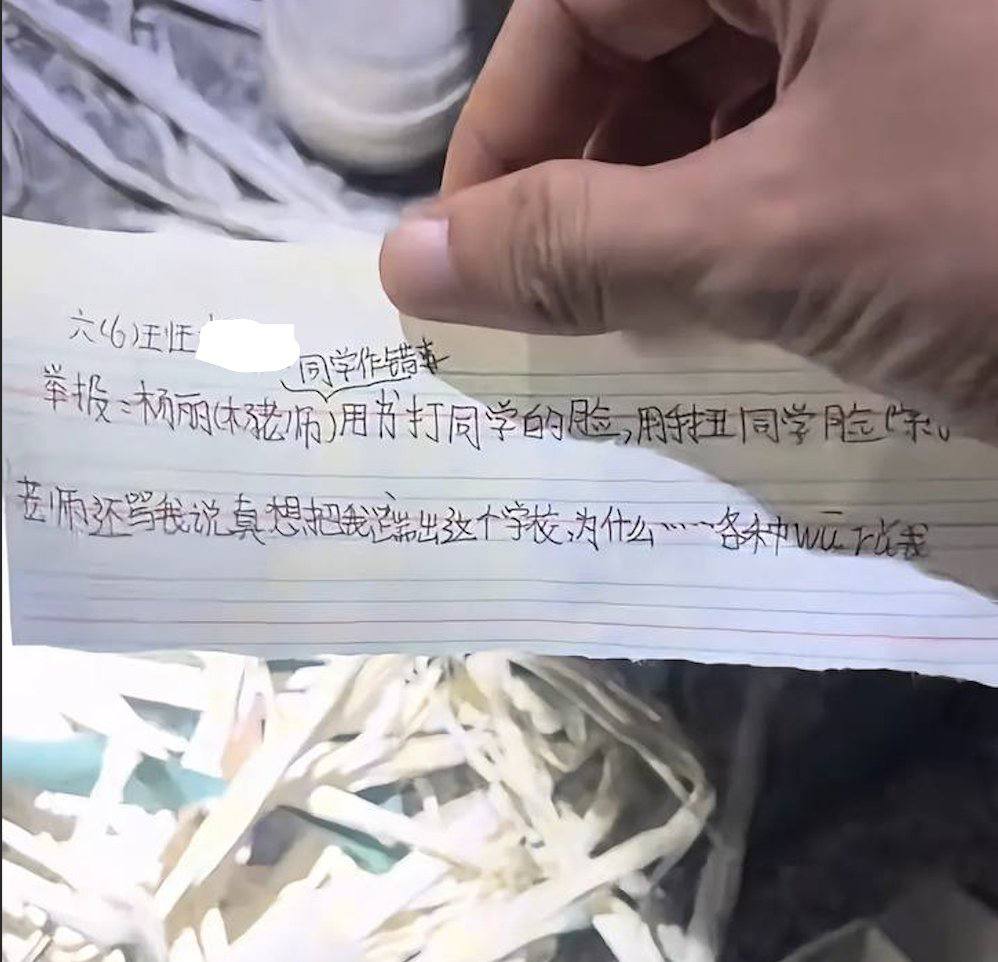 六(6)班
同学作错事
举报:杨丽(杨老师)用书打同学的脸,用手扭同学脸
老师还骂我说真想把我踹出这个学校,为什么……各种wū 我